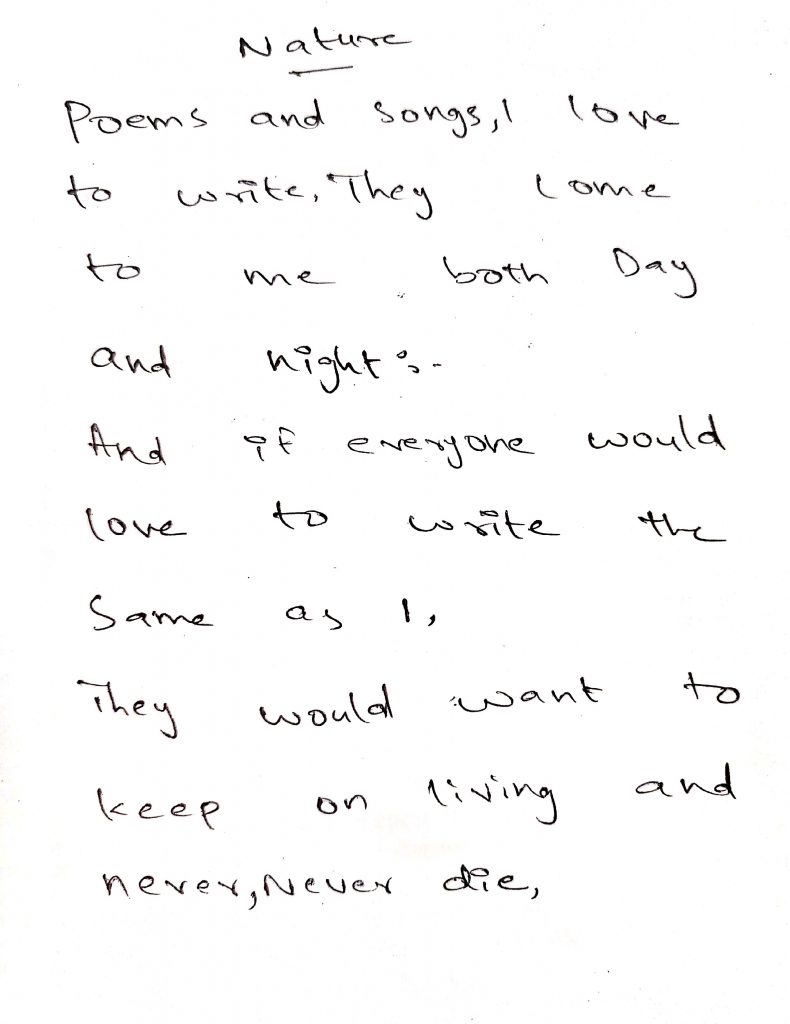 Nature
Poems and songs,I love
to write, They come
to me both Day
and night:-
And if everyone would
love to write the
Same as I,
They would want to
keep on living and
never,Never die,